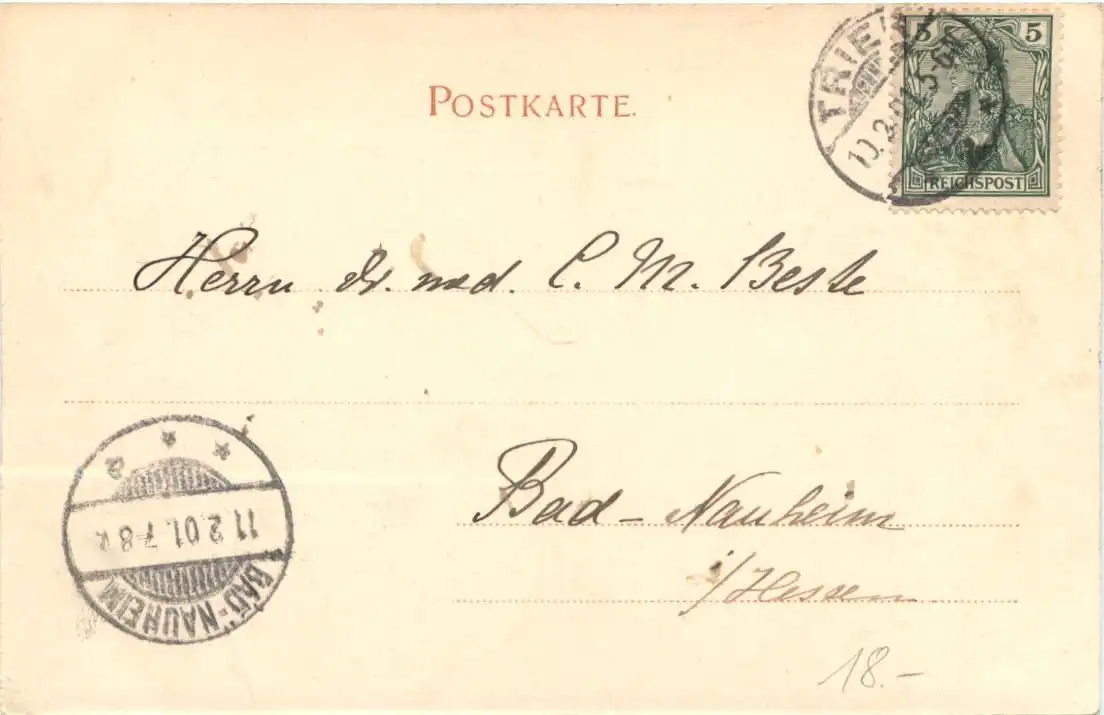 5 5
REICHSPOST
TRIER
10.2.01. 5-6N
POSTKARTE.
Herrn Dr. med. C. M. Beste
Bad-Nauheim
i/Hessen
11.2.01.7-8V.
BAD-NAUHEIM
18.-